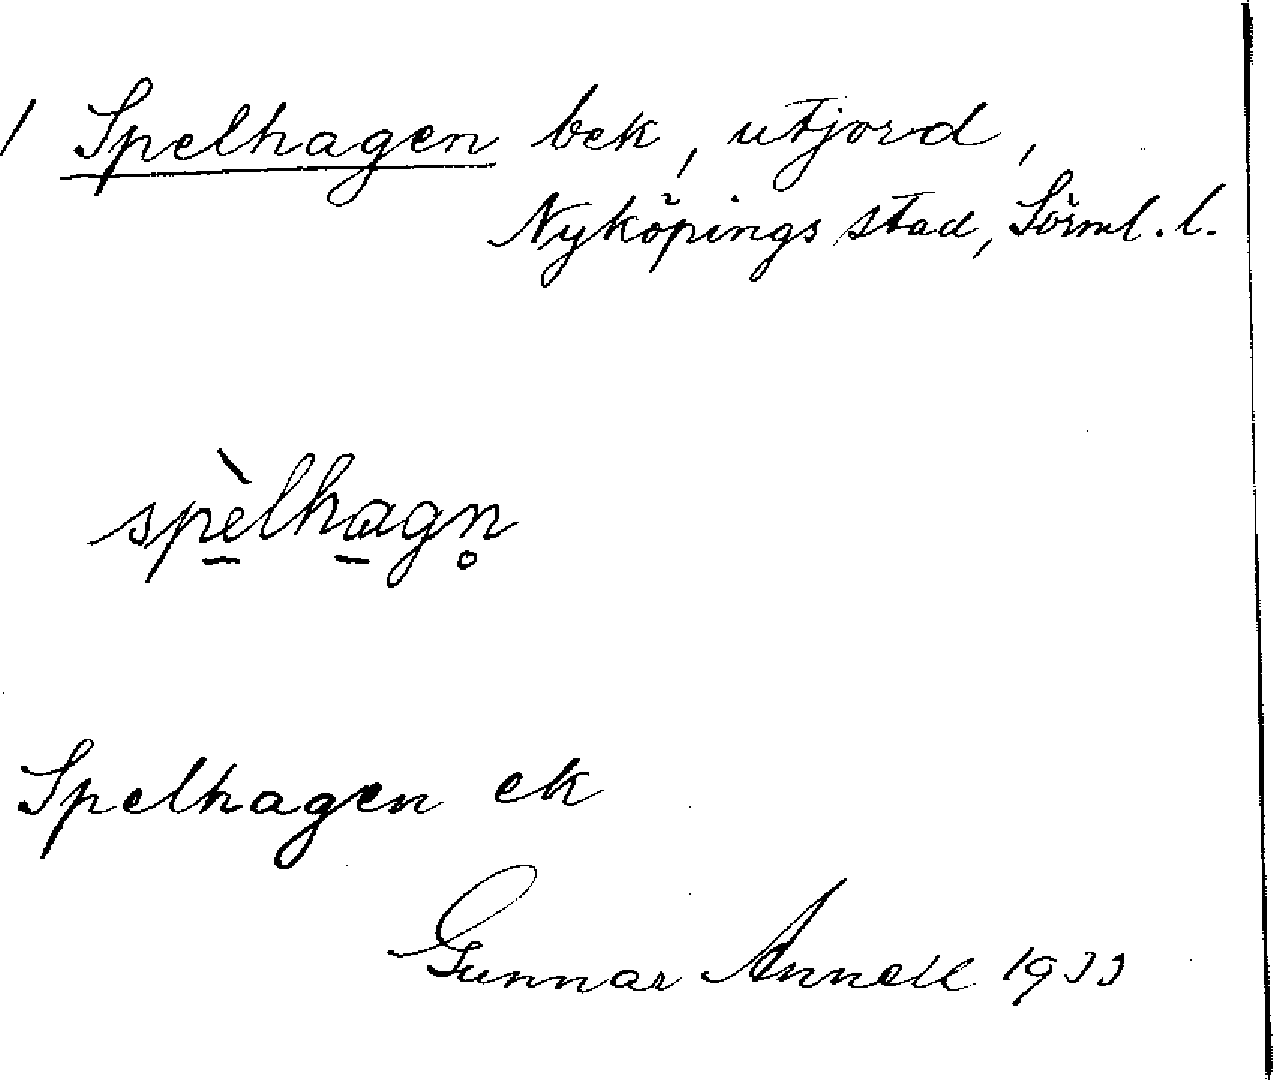 / Spelhagen bek, utjord,
Nyköpings stad, Sörml. l.
spè̠lha̠gn̥
Spelhagen ek
Gunnar Annell 1933